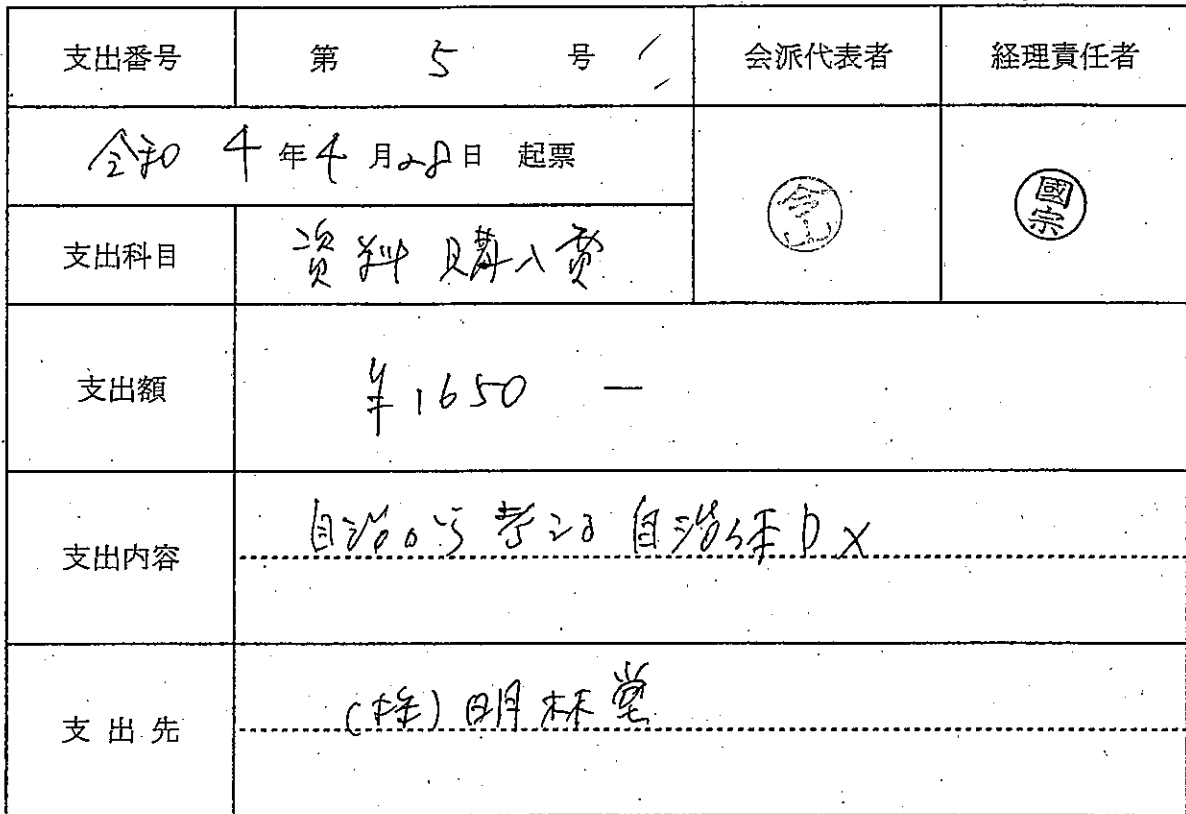 支出番号 第 5 号 会派代表者 経理責任者
令和 4 年 4 月 28 日 起票
支出科目 資料購入費
國宗
支出額 ¥1650 ―
支出内容 自治から考える自治体DX
支出先 (株)明林堂